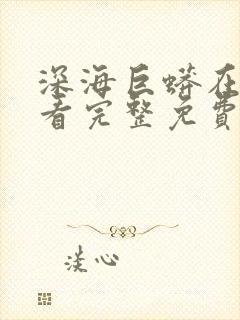 深海巨蟒在
看完整免費
淡心